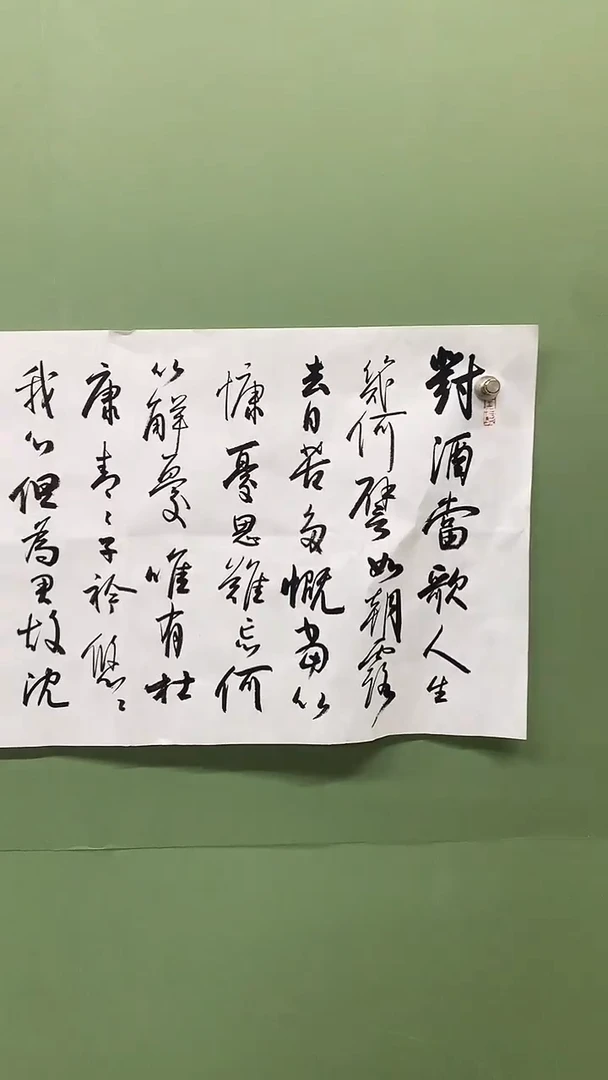 對酒當歌人生
幾何譬如朝露
去日苦多慨當以
慷憂思難忘何
以解憂唯有杜
康青〻子衿悠〻
我心但為君故沈